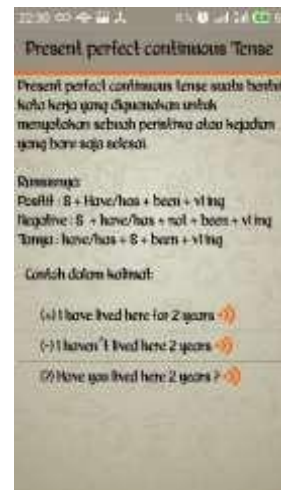 22:30
Present perfect continuous Tense
Present perfect continuous tense suatu bentuk
kata kerja yang digunakan untuk
menyatakan sebuah peristiwa atau kejadian
yang baru saja selesai.
Rumusnya:
Positif : S + Have/has + been + v1 ing
Negative : S + have/has + not + been + v1 ing
Tanya : have/has + S + been + v1 ing
Contoh dalam kalimat:
(+) I have lived here for 2 years
(-) I haven't lived here 2 years
(?) Have you lived here 2 years ?